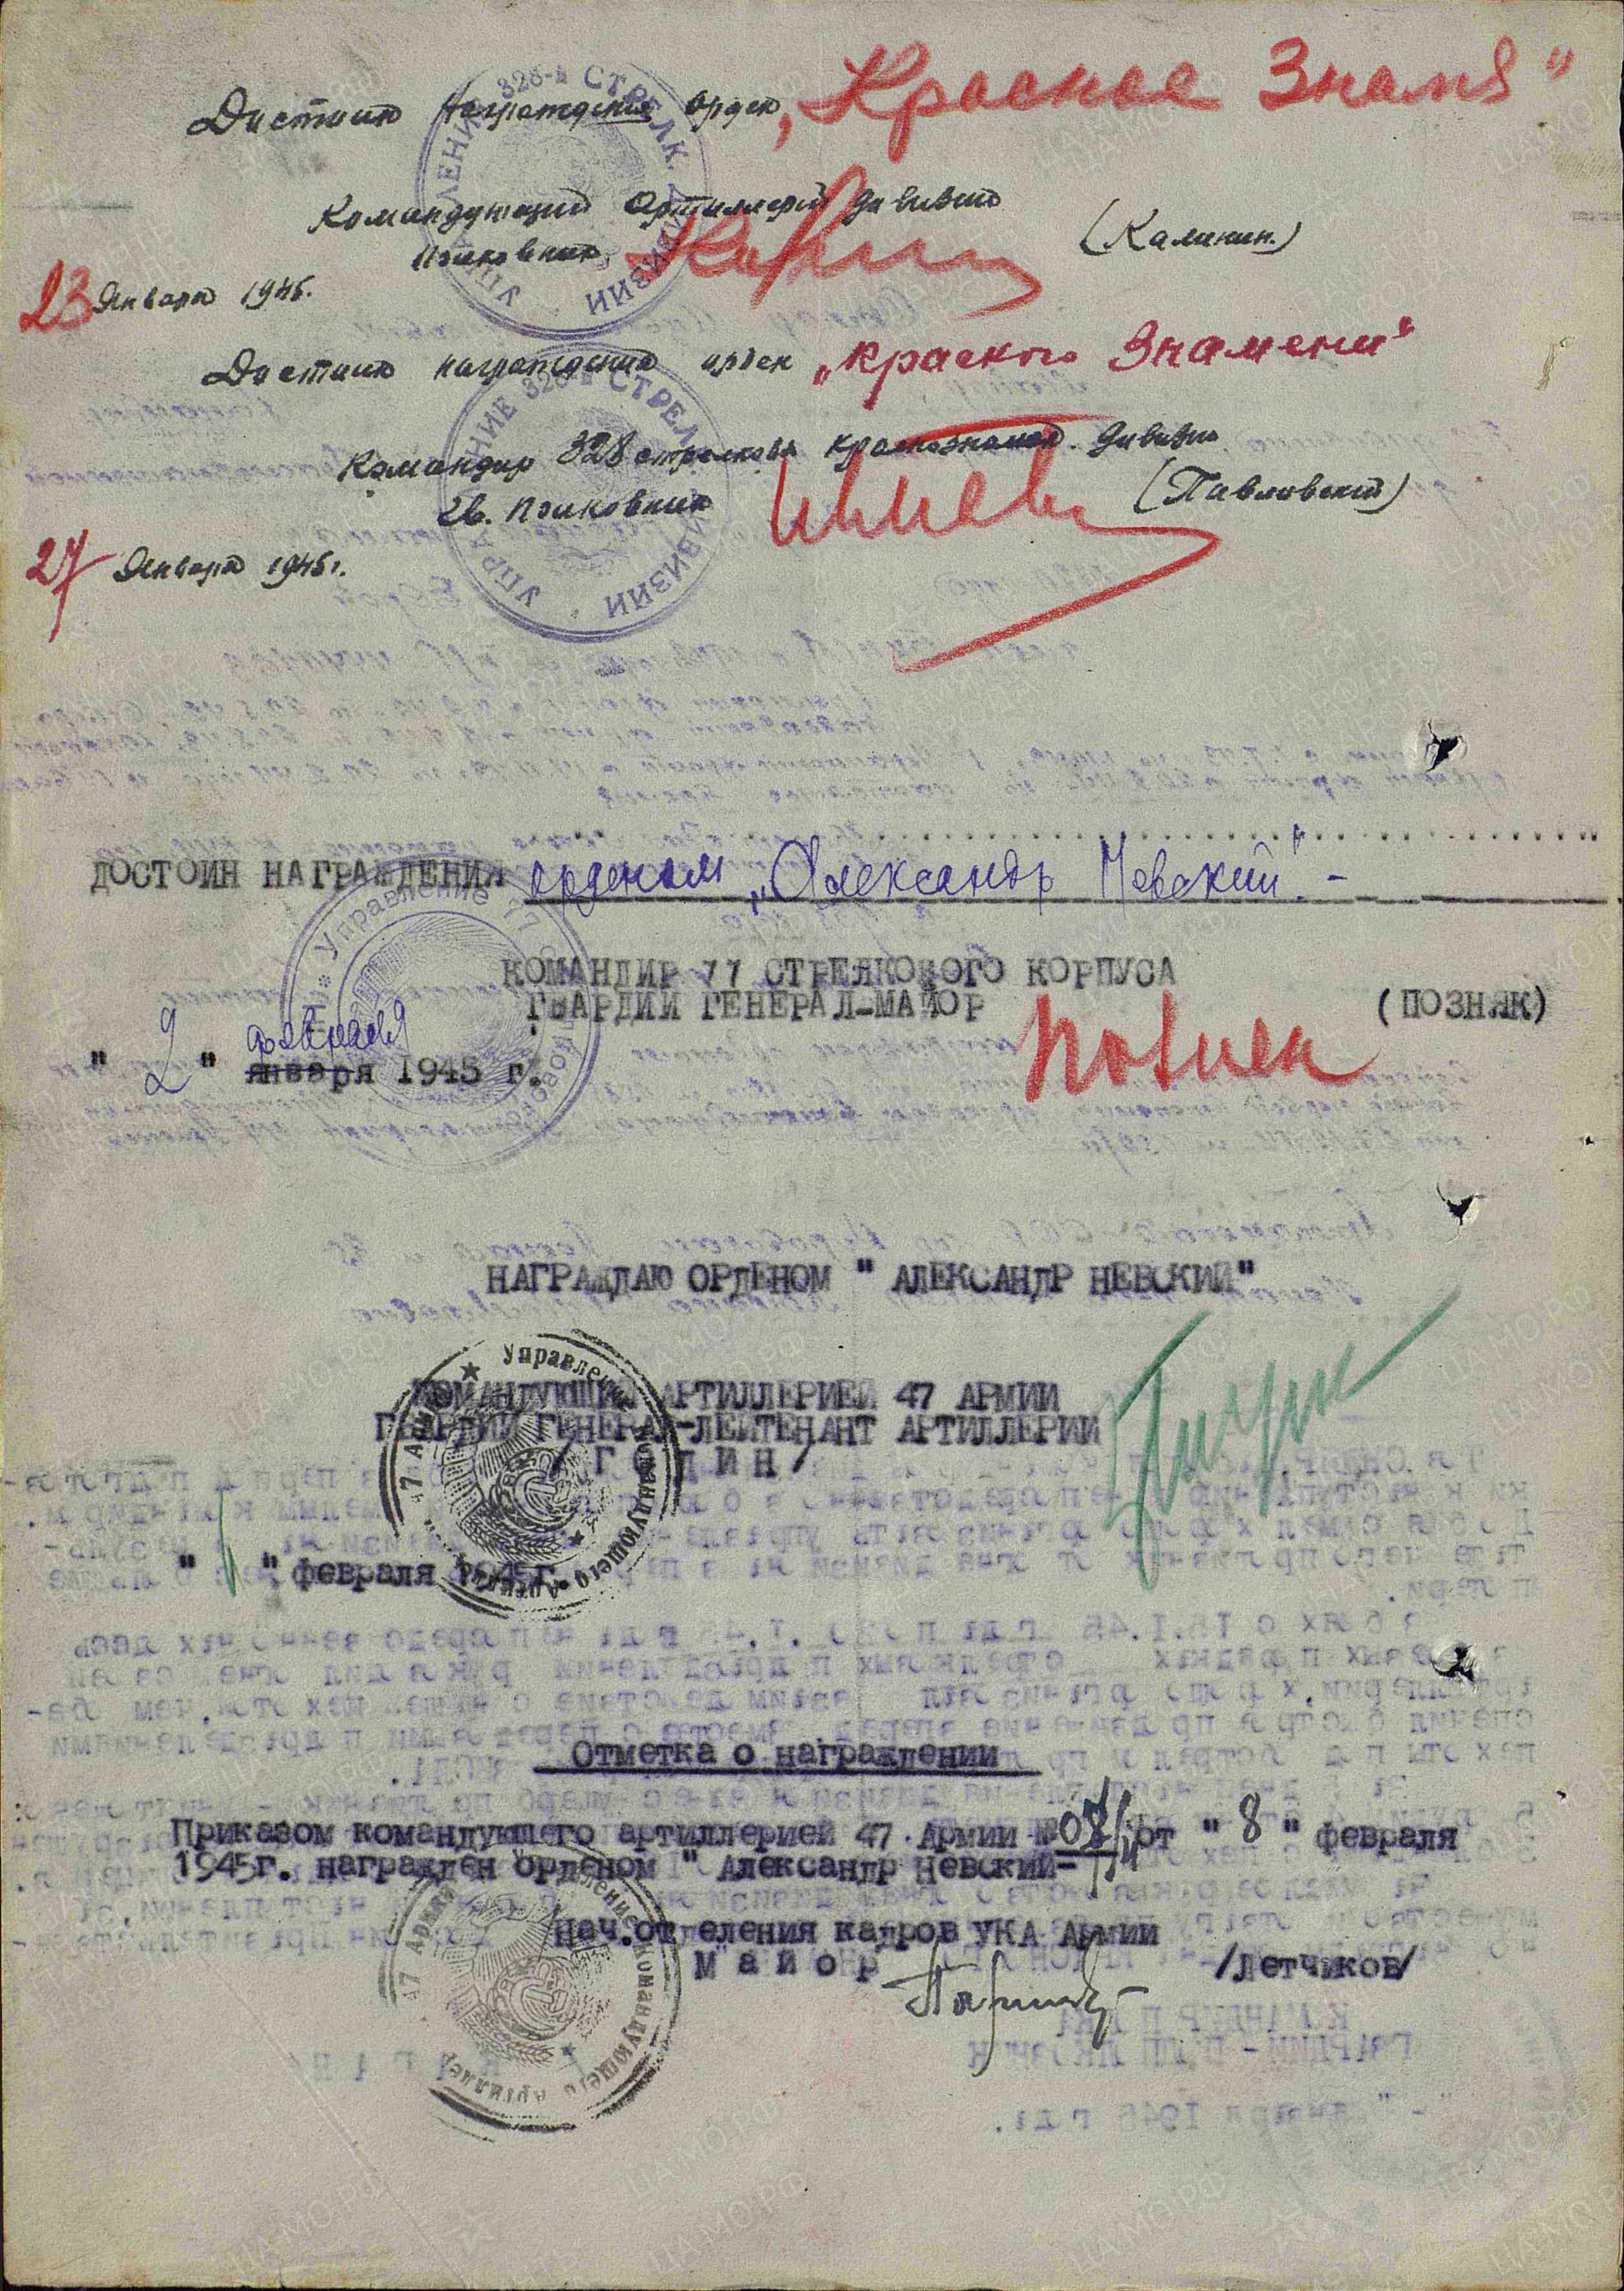 Достоин награждения орден „Красное Знамя"
Командующий Артиллерией дивизии
Полковник (Калинин.)
23 Января 1945.
Достоин награждения орден „Красного Знамени"
Командир 328 стрелковой краснознамен. дивизии
Гв. Полковник (Павловский)
27 Января 1945 г.
УПРАВЛЕНИЕ 328-й СТРЕЛК. ДИВИЗИИ
ДОСТОИН НАГРАЖДЕНИЯ орденом „Александр Невский".-
КОМАНДИР 77 СТРЕЛКОВОГО КОРПУСА
ГВАРДИИ ГЕНЕРАЛ-МАЙОР (ПОЗНЯК)
Позняк
февраля
" 2 " января 1945 г.
НАГРАЖДАЮ ОРДЕНОМ " АЛЕКСАНДР НЕВСКИЙ"
КОМАНДУЮЩИЙ АРТИЛЛЕРИЕЙ 47 АРМИИ
ГВАРДИИ ГЕНЕРАЛ-ЛЕЙТЕНАНТ АРТИЛЛЕРИИ
/ Г О Д И Н /
" " февраля 1945 г.
Управление Командующего Артиллерией 47 Армии
Отметка о награждении
Приказом командующего артиллерией 47 Армии № от " 8 " февраля
1945г. награжден орденом " Александр Невский-
Нач.отделения кадров УКА Армии
М а й о р /Летчиков/